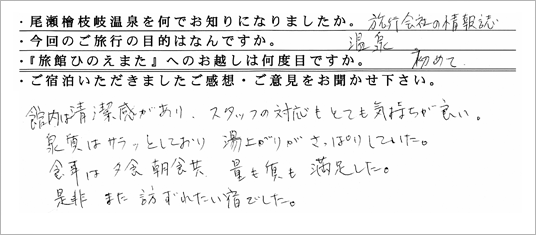 ・尾瀬檜枝岐温泉を何でお知りになりましたか。 旅行会社の情報誌
・今回のご旅行の目的はなんですか。 温泉
・『旅館ひのえまた』へのお越しは何度目ですか。 初めて
・ご宿泊いただきましたご感想・ご意見をお聞かせ下さい。
館内は清潔感があり、スタッフの対応もとても気持ちが良い。
泉質はサラッとしており 湯上がりがさっぱりしていた。
食事は夕食朝食共 量も質も満足した。
是非 また訪ずれたい宿でした。